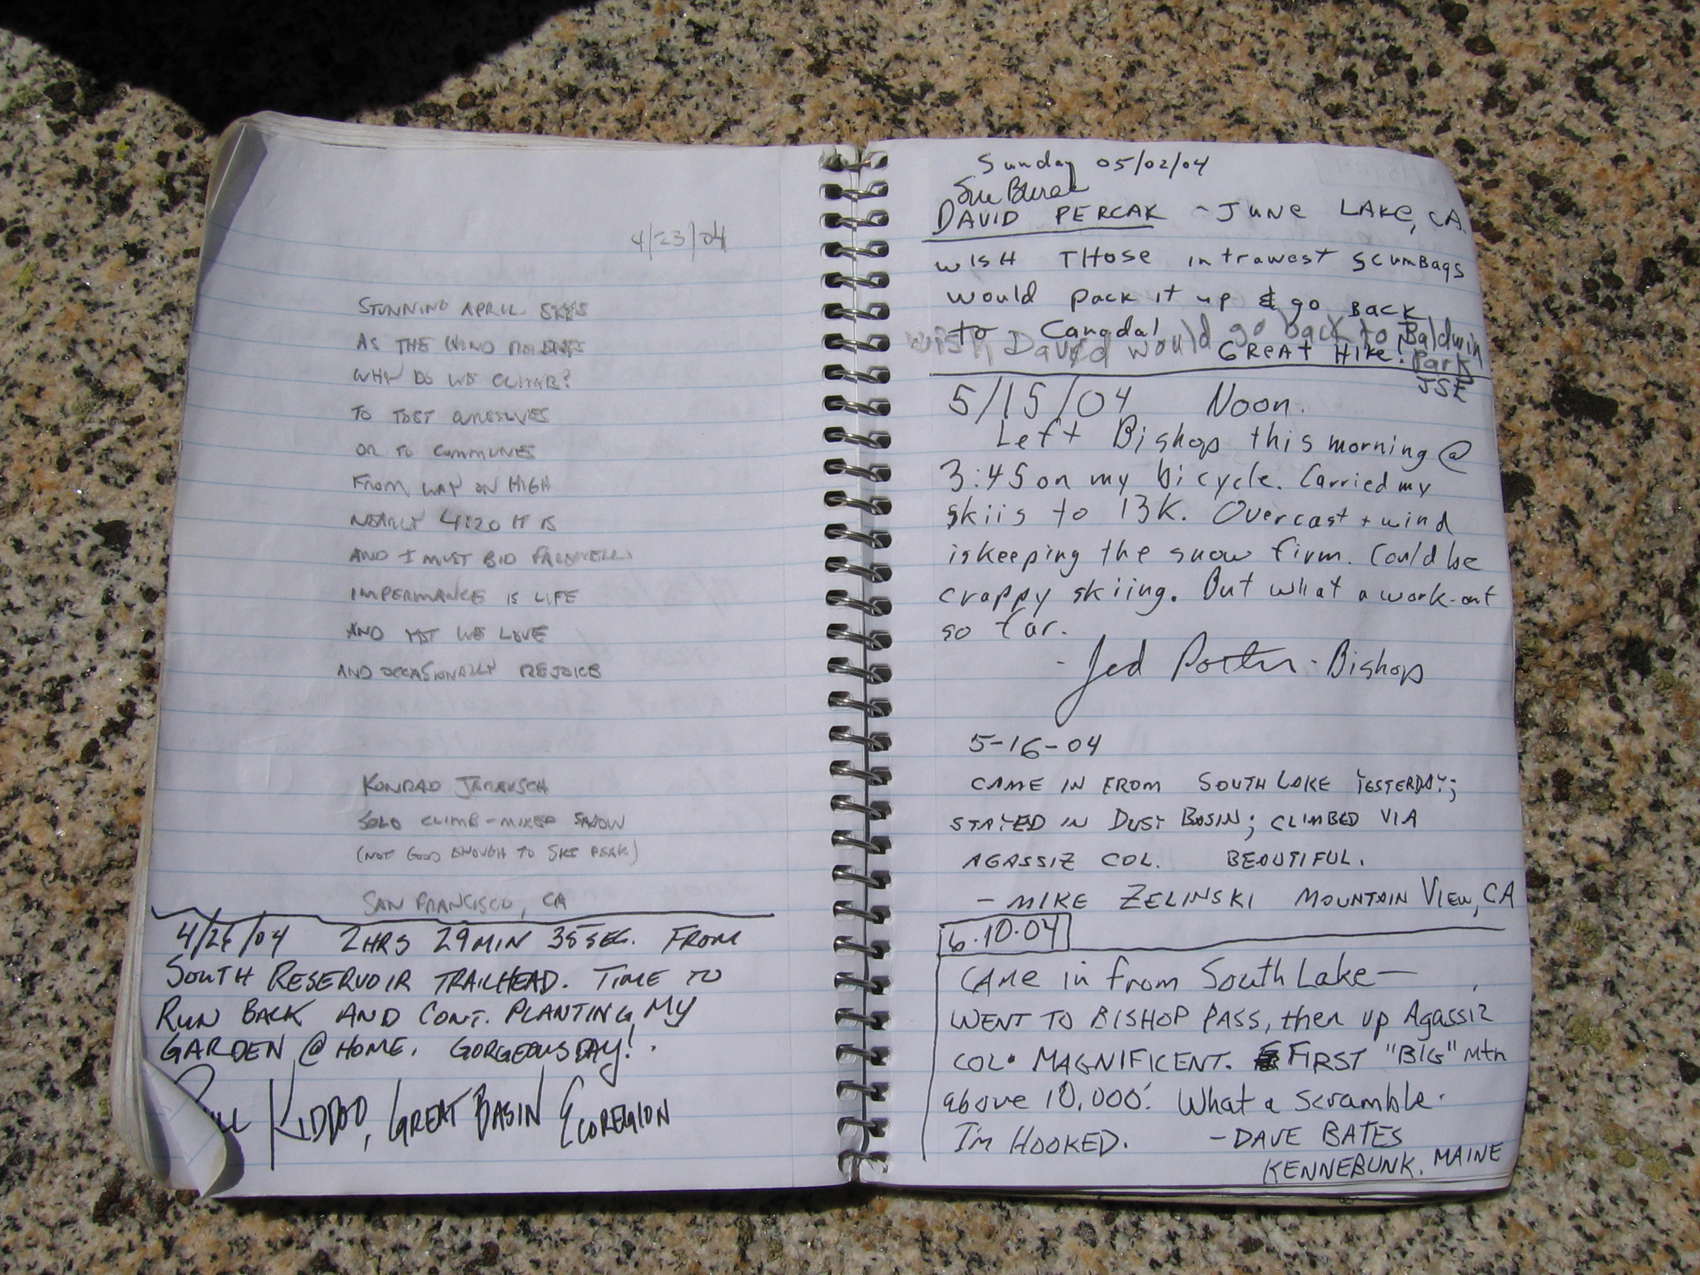 4/23/04
STUNNING APRIL SKIES
AS THE WIND
WHY DO WE CLIMB?
TO TEST OURSELVES
OR TO COMMUNES
FROM WAY ON HIGH
NEARLY 4:20 IT IS
AND I MUST BID FAREWELL
IMPERMANCE IS LIFE
AND YET WE LOVE
AND OCCASIONALLY REJOICE
KONRAD JARAUSCH
SOLO CLIMB - MIXED SNOW
(NOT GOOD ENOUGH TO SKI PEAK)
SAN FRANCISCO, CA
4/26/04 2HRS 29MIN 35SEC. FROM
SOUTH RESERVOIR TRAILHEAD. TIME TO
RUN BACK AND CONT. PLANTING MY
GARDEN @ HOME. GORGEOUS DAY!.
KIDDOO, GREAT BASIN ECOREGION
Sunday 05/02/04
Sue
DAVID PERCAK - JUNE LAKE, CA.
wisH THOse intrawest scumBags
would pack it up & go BACK
to Canada!
wish David would go back to Baldwin
GREAT HIKE! Park
JSE
5/15/04 Noon.
Left Bishop this morning @
3:45 on my bicycle. Carried my
skiis to 13K. Overcast + wind
is keeping the snow firm. Could be
crappy skiing. But what a work-out
so far.
- Jed Porter - Bishop
5-16-04
CAME IN FROM SOUTH LAKE YESTERDAY;
STAYED IN DUSY BASIN; CLIMBED VIA
AGASSIZ COL. BEAUTIFUL.
- MIKE ZELINSKI MOUNTAIN VIEW, CA
6.10.04
CAME in from South Lake —
WENT TO BISHOP PASS, then up Agassiz
COL. MAGNIFICENT. FIRST "BIG" Mtn
above 10,000'. What a scramble.
I'm HOOKED. - DAVE BATES
KENNEBUNK, MAINE